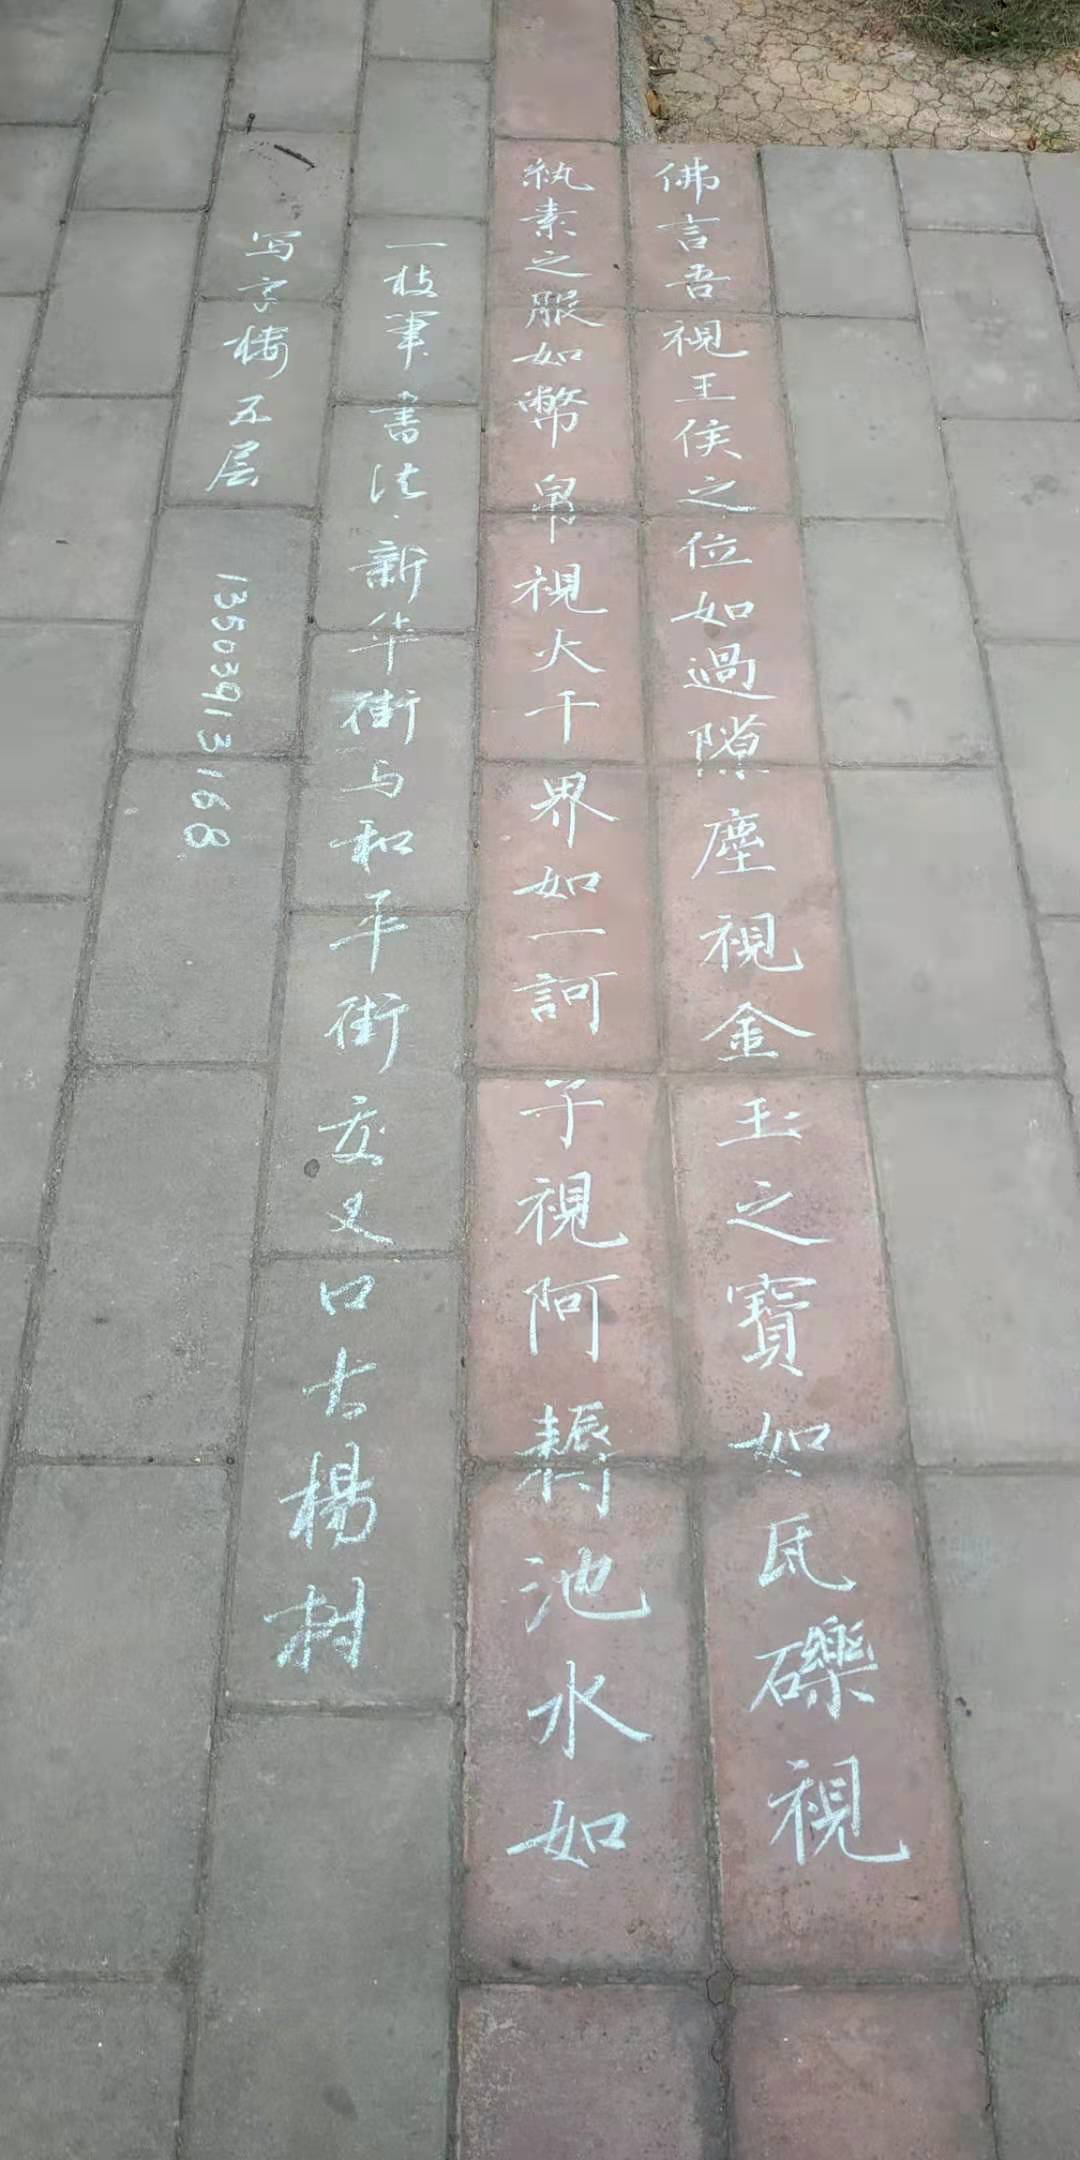 佛言吾視王侯之位如過隙塵視金玉之寶如瓦礫視
紈素之服如幣帛視大千界如一訶子視阿耨池水如
一枝筆書法.新华街与和平街交叉口古楊树
写字楼五层 13503913168